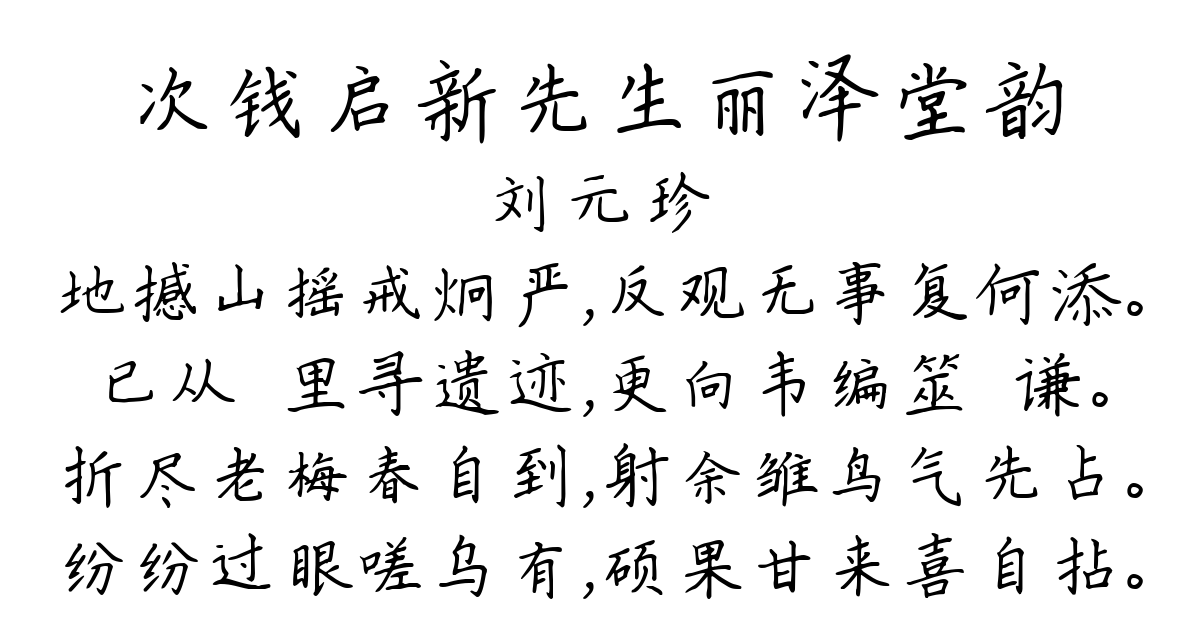 次钱启新先生丽泽堂韵
刘元珍
地撼山摇戒炯严,反观无事复何添。
已从 里寻遗迹,更向韦编筮 谦。
折尽老梅春自到,射余雏鸟气先占。
纷纷过眼嗟乌有,硕果甘来喜自拈。